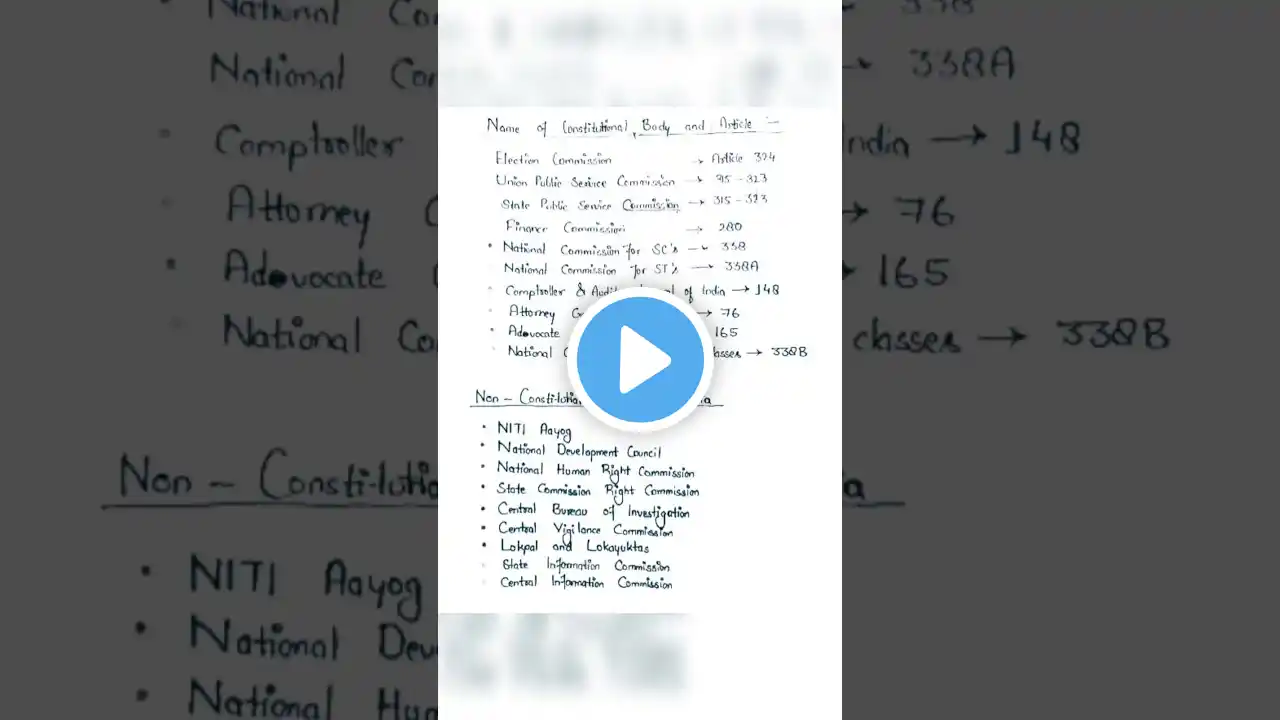 Name of Constitutional Body and Article :-
Election Commission → Article 324
Union Public Service Commission → 315-323
State Public Service Commission → 315-323
Finance Commission → 280
• National Commission for SC's → 338
National Commission for ST's → 338A
• Comptroller & of India → 148
• Attorney → 76
• Adovocate 165
• National classes → 338B
Non-Constitutional
• NITI Aayog
• National Development Council
• National Human Right Commission
• State Commission Right Commission
• Central Bureau of Investigation
• Central Vigilance Commission
• Lokpal and Lokayuktas
State Information Commission
Central Information Commission